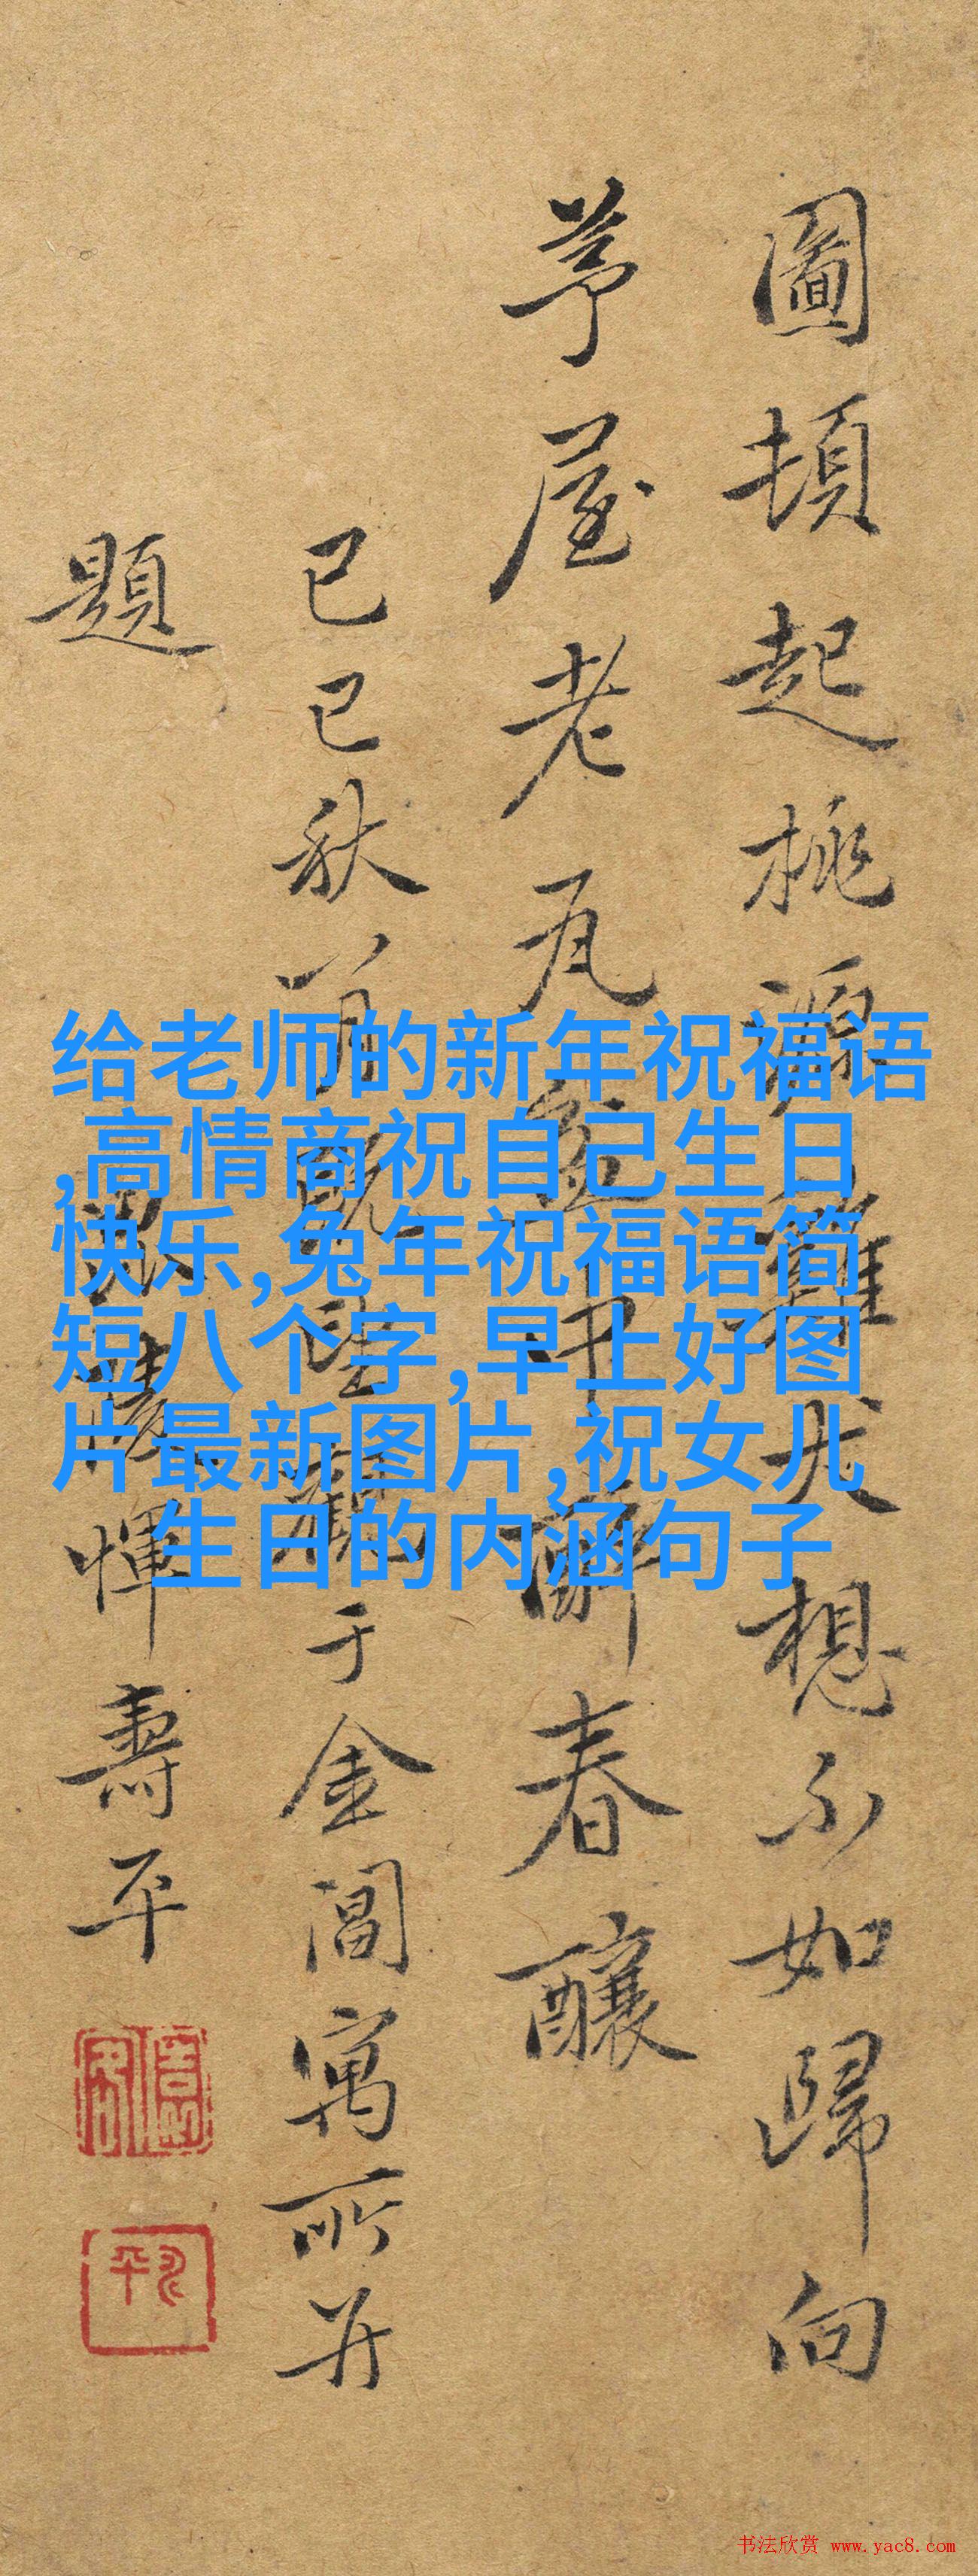 圖頓起桃源雞犬想不如歸向
茅屋老瓦盆中醉春釀
己巳秋八月既望觀于金閶寓所并
題
惲壽平
给老师的新年祝福语
,高情商祝自己生日
快乐,兔年祝福语简
短八个字,早上好图
片最新图片,祝女儿
生日的内涵句子
书法欣赏 www.yac8.com